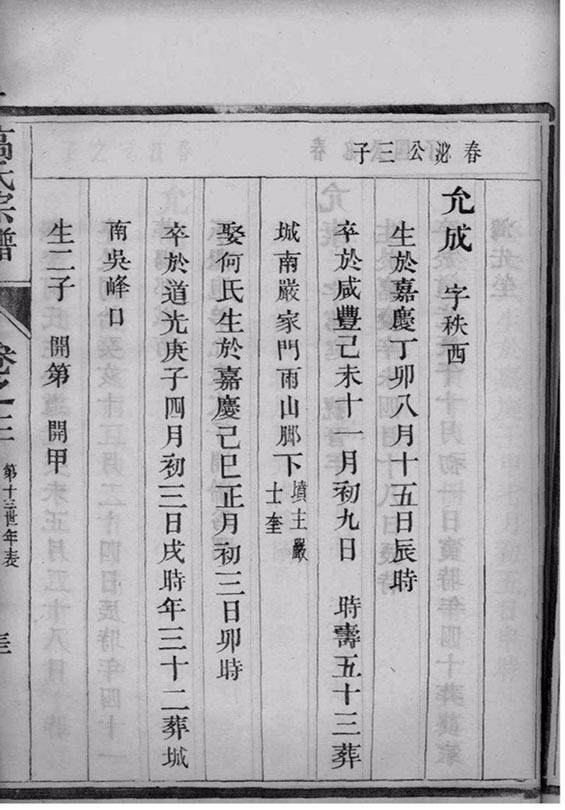 春巡公三子
允成 字秩西
生於嘉慶丁卯八月十五日辰時
卒於咸豐己未十一月初九日 時壽五十三葬
城南嚴家門雨山脚下 墳主嚴
士奎
娶何氏生於嘉慶己巳正月初三日卯時
卒於道光庚子四月初三日戌時年三十二葬城
南吳峰口
生二子 開第 開甲
高氏宗譜
卷之三
第十三世年表